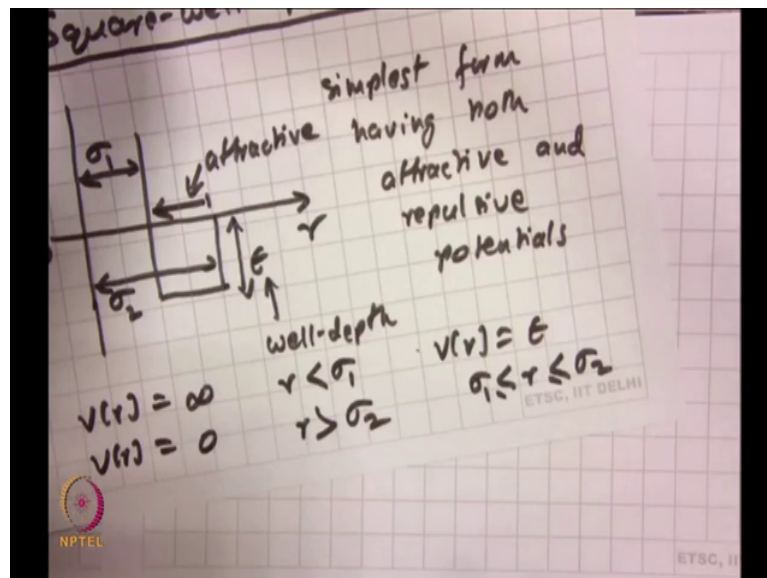 Square-well
simplest form
attractive having both
attractive and
repulsive
potentials
σ₁
r
ϵ
σ₂
well-depth
v(r) = ∞ r < σ₁ v(r) = ϵ
v(r) = 0 r > σ₂ σ₁ ≤ r ≤ σ₂
ETSC, IIT DELHI
NPTEL
ETSC, II